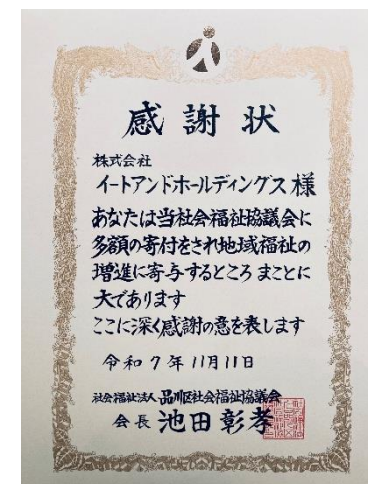 感謝状
株式会社
イートアンドホールディングス様
あなたは当社会福祉協議会に
多額の寄付をされ地域福祉の
増進に寄与するところ まことに
大であります
ここに深く感謝の意を表します
令和7年11月11日
社会福祉法人 品川区社会福祉協議会
会長 池田彰孝